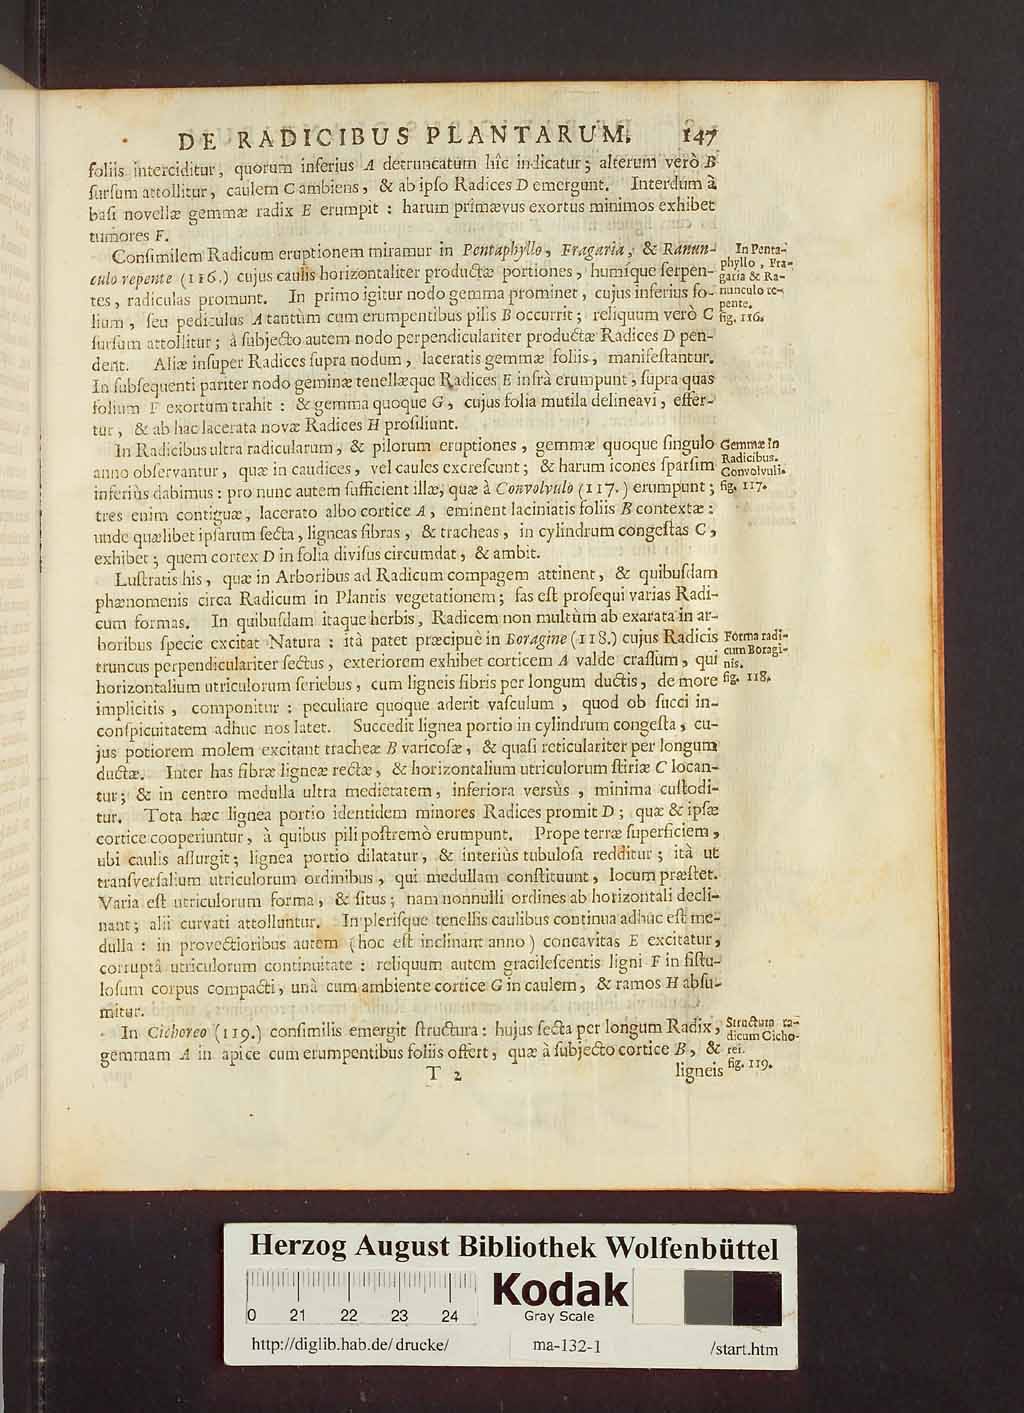 DE RADICIBUS PLANTARUM. 147
foliis interciditur, quorum inferius A detruncatum hîc indicatur; alterum verò B
sursum attollitur, caulem C ambiens, & ab ipso Radices D emergunt. Interdum à
basi novellæ gemmæ radix E erumpit: harum primævus exortus minimos exhibet
tumores F.
Consimilem Radicum eruptionem miramur in Pentaphyllo, Fragaria, & Ranun-
culo repente (116.) cujus caulis horizontaliter productæ portiones, humíque serpen-
tes, radiculas promunt. In primo igitur nodo gemma prominet, cujus inferius fo-
lium, seu pediculus A tantùm cum erumpentibus pilis B occurrit; reliquum verò C
sursum attollitur; à subjecto autem nodo perpendiculariter productæ Radices D pen-
dent. Aliæ insuper Radices supra nodum, laceratis gemmæ foliis, manifestantur.
In subsequenti pariter nodo geminæ tenellæque Radices E infrà erumpunt, supra quas
folium F exortum trahit: & gemma quoque G, cujus folia mutila delineavi, effer-
tur, & ab hac lacerata novæ Radices H prosiliunt.
In Penta-
phyllo, Fra-
garia & Ra-
nunculo re-
pente.
fig. 116.
In Radicibus ultra radicularum, & pilorum eruptiones, gemmæ quoque singulo
anno observantur, quæ in caudices, vel caules excrescunt; & harum icones sparsim
inferiùs dabimus: pro nunc autem sufficient illæ, quæ à Convolvulo (117.) erumpunt;
tres enim contiguæ, lacerato albo cortice A, eminent laciniatis foliis B contextæ:
unde quælibet ipsarum secta, ligneas fibras, & tracheas, in cylindrum congestas C,
exhibet; quem cortex D in folia divisus circumdat, & ambit.
Gemmæ in
Radicibus.
Convolvuli.
fig. 117.
Lustratis his, quæ in Arboribus ad Radicum compagem attinent, & quibusdam
phænomenis circa Radicum in Plantis vegetationem; fas est prosequi varias Radi-
cum formas. In quibusdam itaque herbis, Radicem non multùm ab exarata in ar-
boribus specie excitat Natura: ità patet præcipuè in Boragine (118.) cujus Radicis
truncus perpendiculariter sectus, exteriorem exhibet corticem A valde crassum, qui
horizontalium utriculorum seriebus, cum ligneis fibris per longum ductis, de more
implicitis, componitur: peculiare quoque aderit vasculum, quod ob succi in-
conspicuitatem adhuc nos latet. Succedit lignea portio in cylindrum congesta, cu-
jus potiorem molem excitant tracheæ B varicosæ, & quasi reticulariter per longum
ductæ. Inter has fibræ ligneæ rectæ, & horizontalium utriculorum striæ C locan-
tur; & in centro medulla ultra medietatem, inferiora versùs, minima custodi-
tur. Tota hæc lignea portio identidem minores Radices promit D; quæ & ipsæ
cortice cooperiuntur, à quibus pili postremò erumpunt. Prope terræ superficiem,
ubi caulis assurgit; lignea portio dilatatur, & interiùs tubulosa redditur; ità ut
transversalium utriculorum ordinibus, qui medullam constituunt, locum præstet.
Varia est utriculorum forma, & situs; nam nonnulli ordines ab horizontali decli-
nant; alii curvati attolluntur. In plerisque tenellis caulibus continua adhuc est me-
dulla: in provectioribus autem (hoc est inclinant anno) concavitas E excitatur,
corruptâ utriculorum continuitate: reliquum autem gracilescentis ligni F in fistu-
losum corpus compacti, unà cum ambiente cortice G in caulem, & ramos H absu-
mitur.
Forma radi-
cum Boragi-
nis.
fig. 118.
In Cichoreo (119.) consimilis emergit structura: hujus secta per longum Radix,
gemmam A in apice cum erumpentibus foliis offert, quæ à subjecto cortice B, &
Structura ra-
dicum Cicho-
rei.
fig. 119.
T 2 ligneis
Herzog August Bibliothek Wolfenbüttel
0 21 22 23 24
Kodak
Gray Scale
http://diglib.hab.de/drucke/ ma-132-1 /start.htm